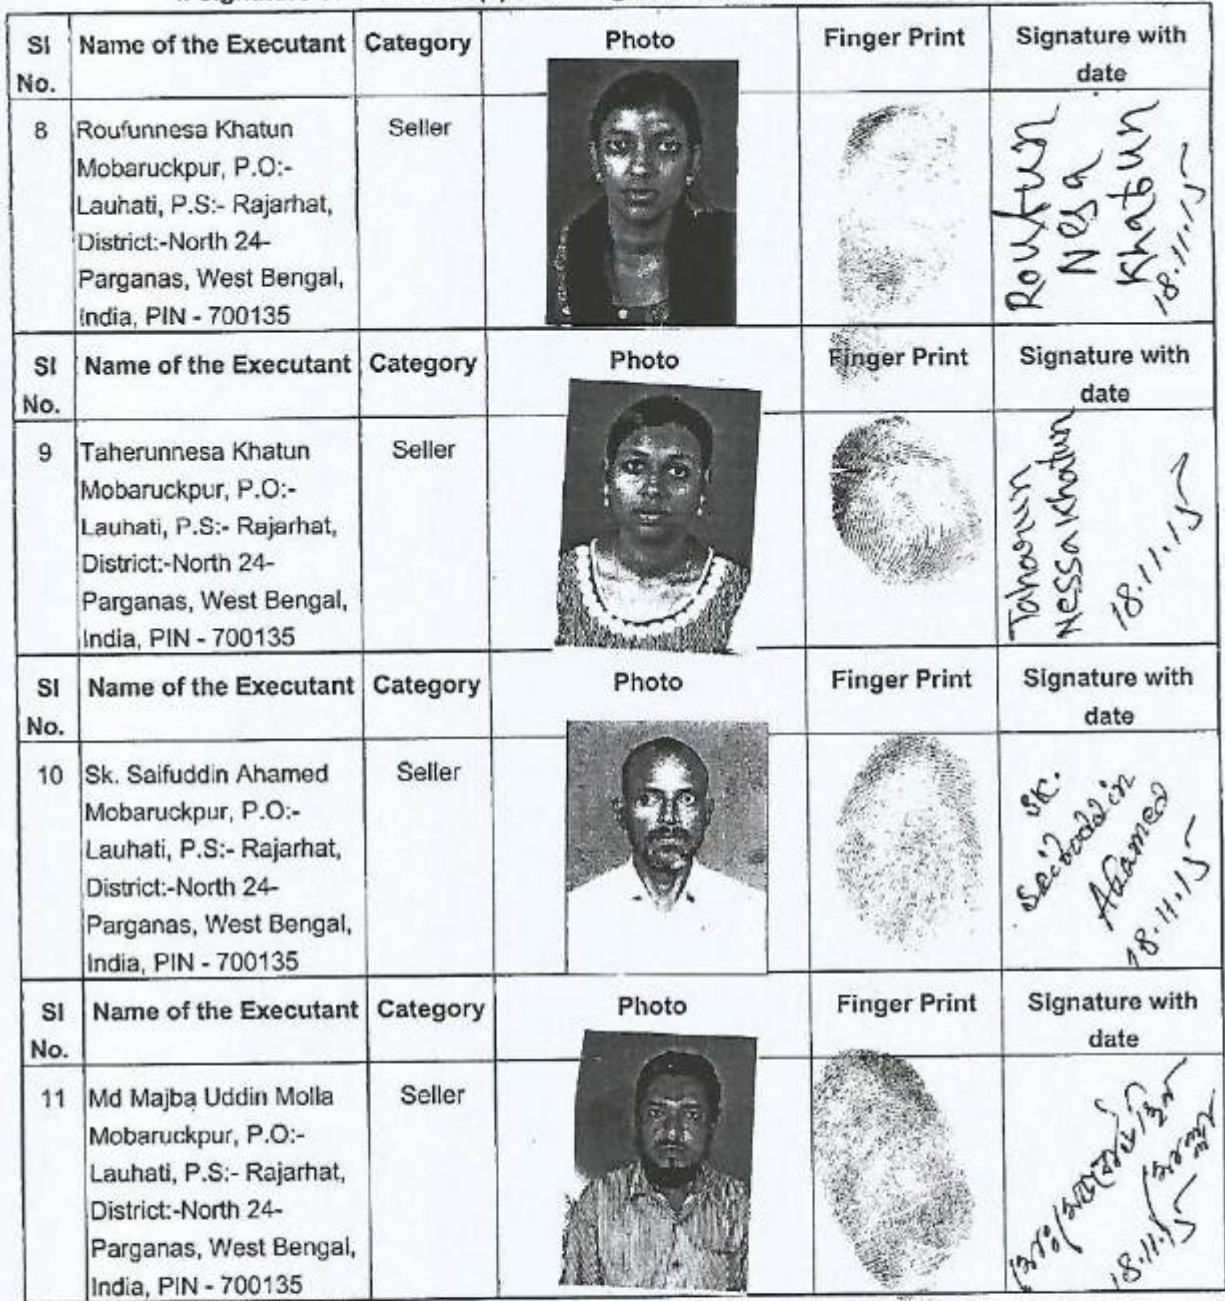 SI No. Name of the Executant Category Photo Finger Print Signature with date
8 Roufunnesa Khatun Seller
Mobaruckpur, P.O:-
Lauhati, P.S:- Rajarhat,
District:-North 24-
Parganas, West Bengal,
India, PIN - 700135
Roufun
Nesa
Khatun
18.11.15
SI No. Name of the Executant Category Photo Finger Print Signature with date
9 Taherunnesa Khatun Seller
Mobaruckpur, P.O:-
Lauhati, P.S:- Rajarhat,
District:-North 24-
Parganas, West Bengal,
India, PIN - 700135
Taharun
Nessa Khatun
18.11.15
SI No. Name of the Executant Category Photo Finger Print Signature with date
10 Sk. Saifuddin Ahamed Seller
Mobaruckpur, P.O:-
Lauhati, P.S:- Rajarhat,
District:-North 24-
Parganas, West Bengal,
India, PIN - 700135
SK.
Ahamed
18.11.15
SI No. Name of the Executant Category Photo Finger Print Signature with date
11 Md Majba Uddin Molla Seller
Mobaruckpur, P.O:-
Lauhati, P.S:- Rajarhat,
District:-North 24-
Parganas, West Bengal,
India, PIN - 700135
18.11.15